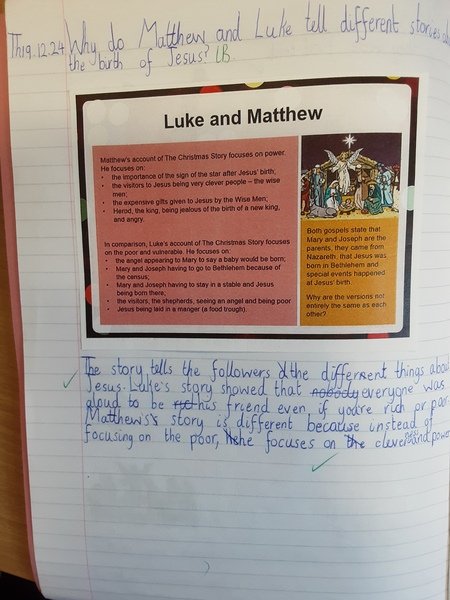 Th19.12.24 Why do Matthew and Luke tell different stories
the birth of Jesus? LB
Luke and Matthew
Matthew's account of The Christmas Story focuses on power.
He focuses on:
• the importance of the sign of the star after Jesus' birth;
• the visitors to Jesus being very clever people – the wise
men;
• the expensive gifts given to Jesus by the Wise Men;
• Herod, the king, being jealous of the birth of a new king,
and angry.
In comparison, Luke's account of The Christmas Story focuses
on the poor and vulnerable. He focuses on:
• the angel appearing to Mary to say a baby would be born;
• Mary and Joseph having to go to Bethlehem because of
the census;
• Mary and Joseph having to stay in a stable and Jesus
being born there;
• the visitors; the shepherds, seeing an angel and being poor
• Jesus being laid in a manger (a food trough).
Both gospels state that
Mary and Joseph are the
parents, they came from
Nazareth, that Jesus was
born in Bethlehem and
special events happened
at Jesus' birth.
Why are the versions not
entirely the same as each
other?
The story tells the followers the different things about
Jesus. Luke's story showed that nobody everyone was
aloud to be his friend even if you're rich or poor
Matthews's story is different because instead of
focusing on the poor, he focuses on the cleverness and power